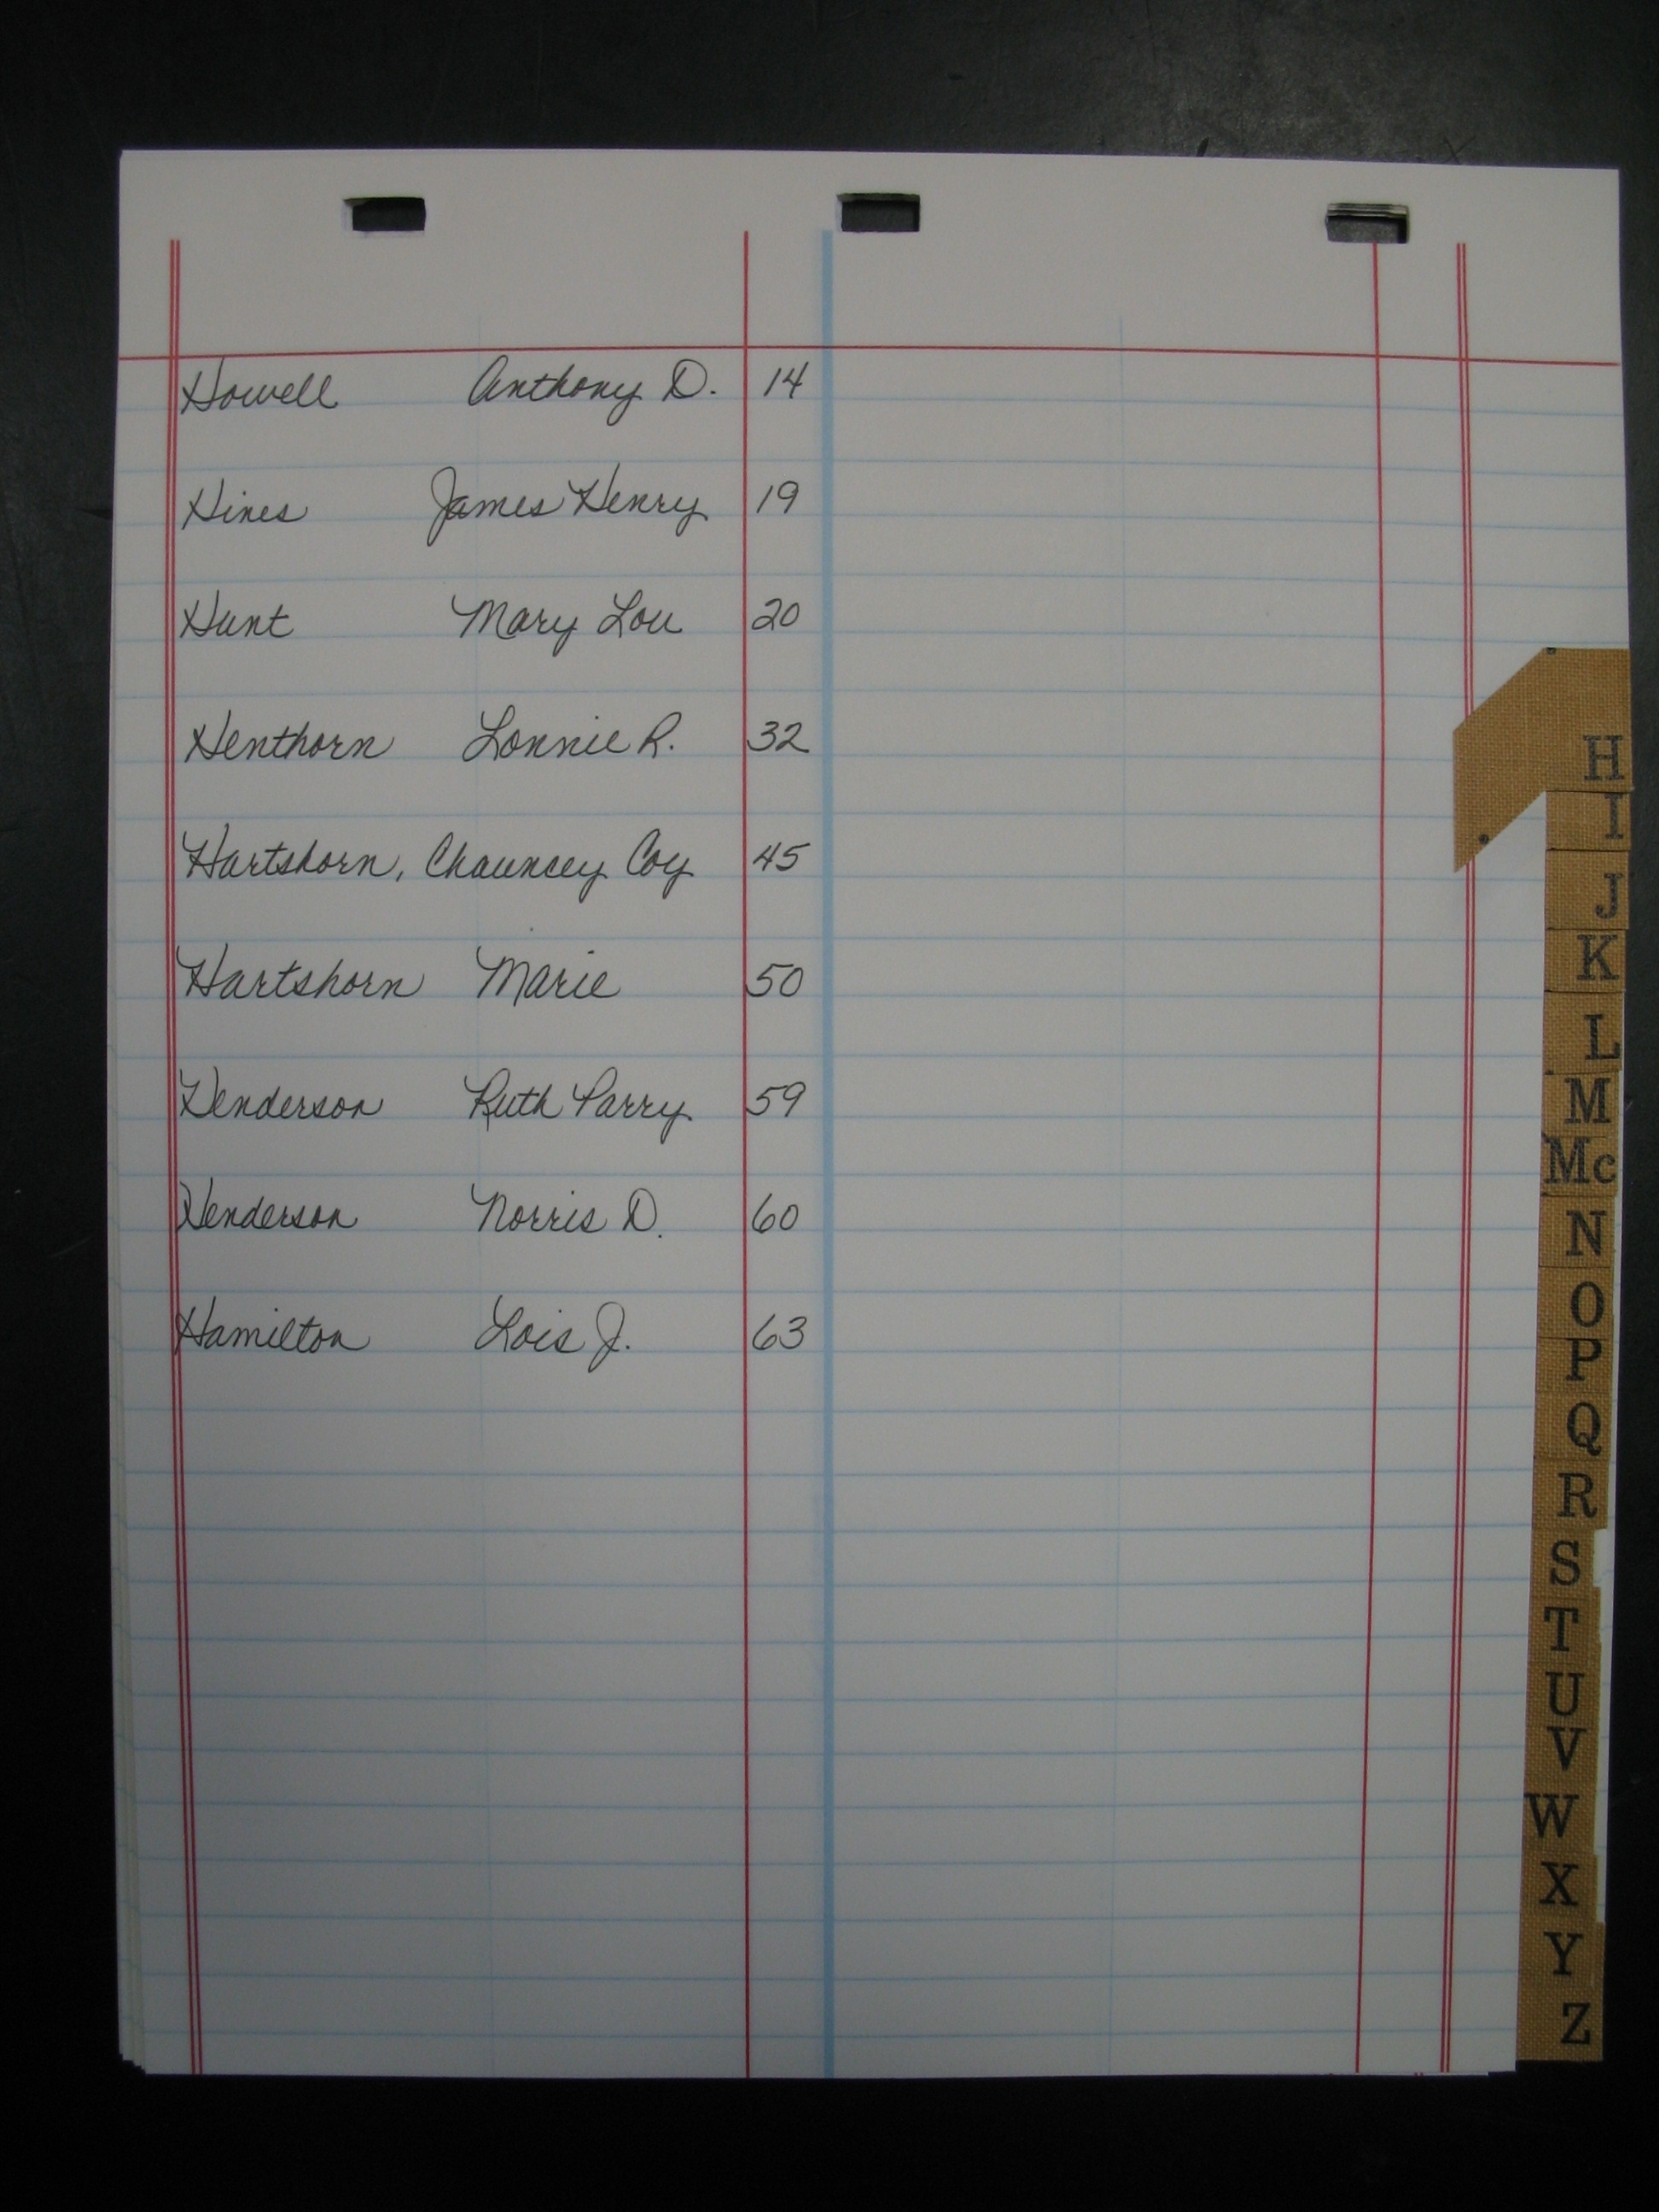 Howell Anthony D. 14
Hines James Henry 19
Hunt Mary Lou 20
Henthorn Lonnie R. 32
Hartshorn, Chauncey Coy 45
Hartshorn Marie 50
Henderson Ruth Parry 59
Henderson Norris D. 60
Hamilton Lois J. 63
H
I
J
K
L
M
Mc
N
O
P
Q
R
S
T
U
V
W
X
Y
Z